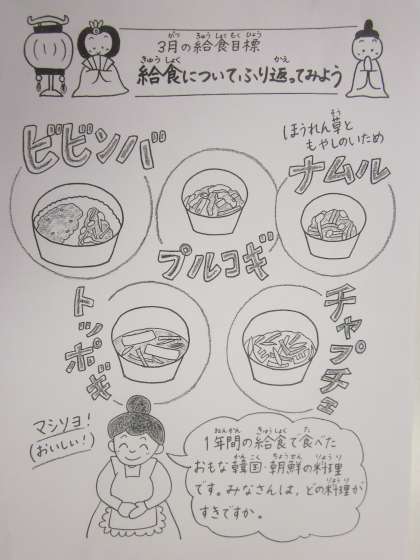 3月の給食目標
給食について、ふり返ってみよう
ビビンバ
ほうれん草と
もやしのいため
ナムル
プルコギ
トッポギ
チャプチェ
マシソヨ!
(おいしい!)
1年間の給食で食べた
おもな韓国・朝鮮の料理
です。みなさんは、どの料理が
すきですか。